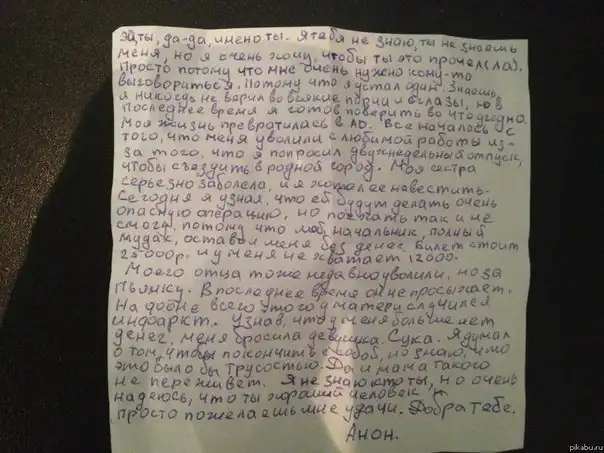 Эй, ты, да-да, имено ты. Я тебя не знаю, ты не знаешь
меня, но я очень хочу, чтобы ты это прочел(ла).
Просто потому что мне очень нужно кому-то
выговориться. Потому что я устал один. Знаешь,
я никогда не верил во всякие порчи и сглазы, но в
последнее время я готов поверить во что угодно.
Моя жизнь превратилась в АД. Все началось с
того, что меня уволили с любимой работы из-
за того, что я попросил двухнедельный отпуск,
чтобы съездить в родной город. Моя сестра
серьезно заболела, и я хотел ее навестить.
Сегодня я узнал, что ей будут делать очень
опасную операцию, но поехать так и не
смогу, потому что мой начальник, полный
мудак, оставил меня без денег. Билет стоит
25 000р. и у меня не хватает 12000.
Моего отца тоже недавно уволили, но за
пьянку. В последнее время он не просыхает.
На добне всего этого у матери случился
инфаркт. Узнав, что у меня больше нет
денег, меня бросила девушка. Сука. Я думал
о том, чтобы покончить с собой, но знаю, что
это было бы трусостью. Да и мама такого
не переживет. Я не знаю кто ты, но очень
надеюсь, что ты хороший человек и
просто пожелаешь мне удачи. Добра тебе.
Анон.
pikabu.ru